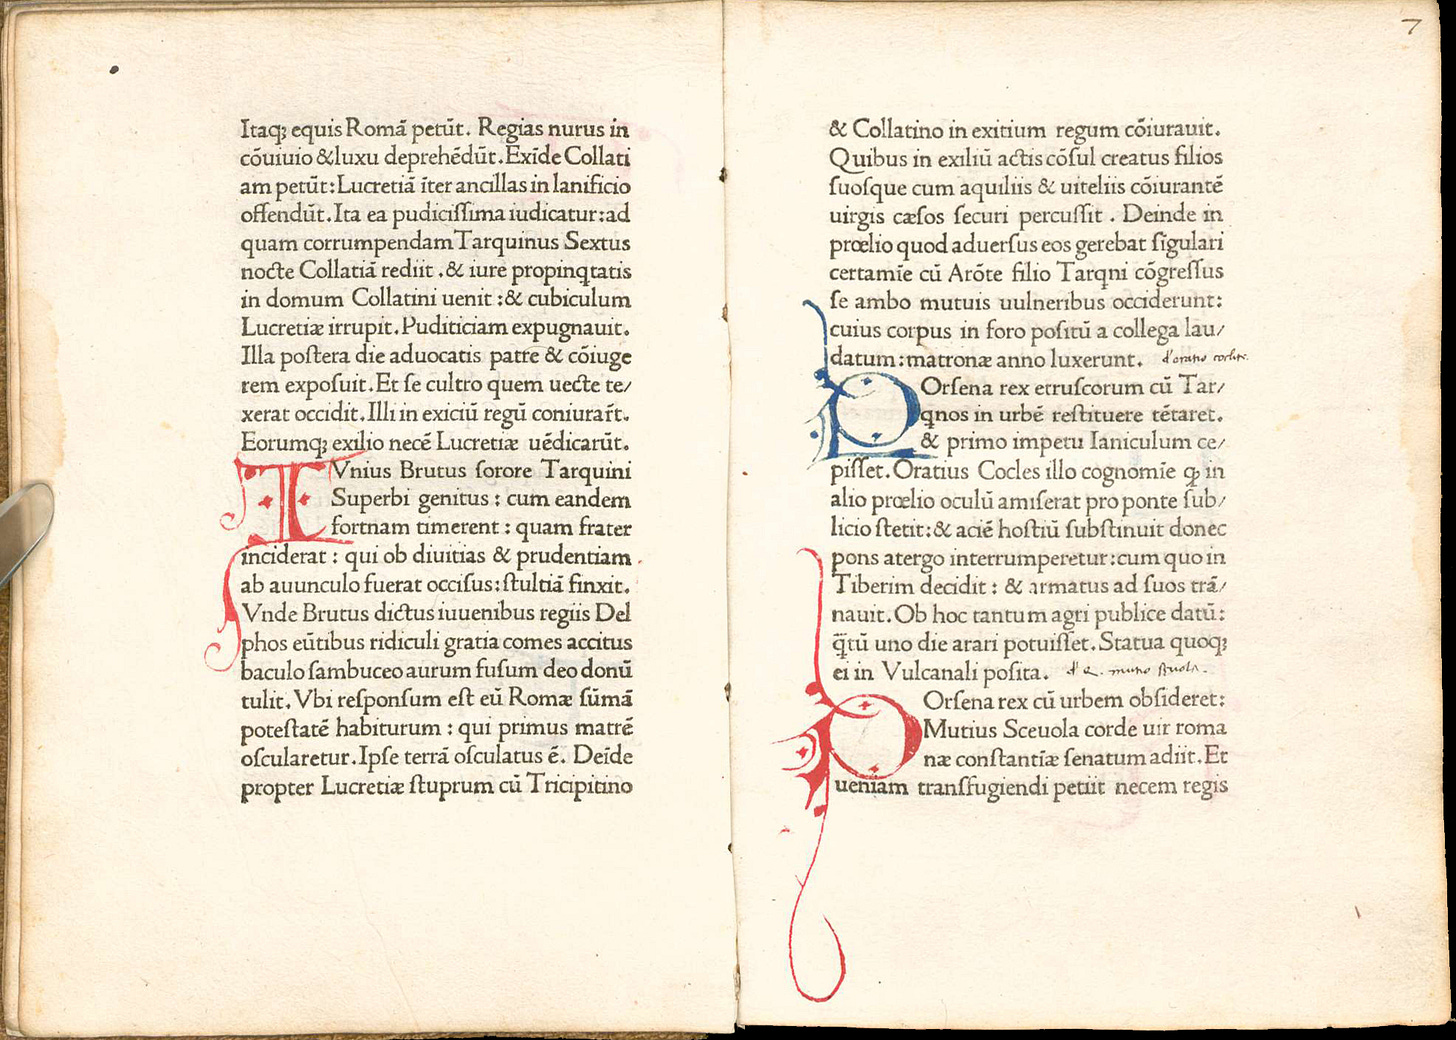 Itaqꝫ equis Romā petūt. Regias nurus in
cōuiuio &luxu deprehēdūt.Exīde Collati
am petūt:Lucretiā īter ancillas in lanificio
offendūt.Ita ea pudicissima iudicatur:ad
quam corrumpendam Tarquinus Sextus
nocte Collatiā rediit .& iure propinqtatis
in domum Collatini uenit :& cubiculum
Lucretiæ irrupit.Puditiciam expugnauit.
Illa postera die aduocatis patre & cōiuge
rem exposuit.Et se cultro quem uecte te/
xerat occidit.Illi in exiciū regū coniurar̄t.
Eorumqꝫ exilio necē Lucretiæ uēdicarūt.
IVnius Brutus sorore Tarquini
Superbi genitus : cum eandem
fortnam timerent : quam frater
inciderat : qui ob diuitias & prudentiam
ab auunculo fuerat occisus:stultiā finxit.
Vnde Brutus dictus iuuenibus regiis Del
phos eūtibus ridiculi gratia comes accitus
baculo sambuceo aurum fusum deo donū
tulit. Vbi responsum est eū Romæ sūmā
potestatē habiturum : qui primus matrē
oscularetur.Ipse terrā osculatus ē. Deīde
propter Lucretiæ stuprum cū Tricipitino
7
& Collatino in exitium regum cōiurauit.
Quibus in exiliū actis cōsul creatus filios
suosque cum aquiliis & uiteliis cōiurantē
uirgis cæsos securi percussit . Deinde in
prœlio quod aduersus eos gerebat sīgulari
certamīe cū Arōte filio Tarqni cōgressus
se ambo mutuis uulneribus occiderunt:
cuius corpus in foro positū a collega lau/
datum:matronæ anno luxerunt. d'oratio coclite.
POrsena rex etruscorum cū Tar/
qnos in urbē restituere tētaret.
& primo impetu Ianiculum ce/
pisset.Oratius Cocles illo cognomīe ꝙ in
alio prœlio oculū amiserat pro ponte sub/
licio stetit:& aciē hostiū substinuit donec
pons atergo interrumperetur:cum quo in
Tiberim decidit : & armatus ad suos trā/
nauit.Ob hoc tantum agri publice datū:
q̄tū uno die arari potuisset.Statua quoqꝫ
ei in Vulcanali posita. d' q. mutio sceuola.
POrsena rex cū urbem obsideret:
Mutius Sceuola corde uir roma
næ constantīæ senatum adiit.Et
ueniam transfugiendi petiit necem regis